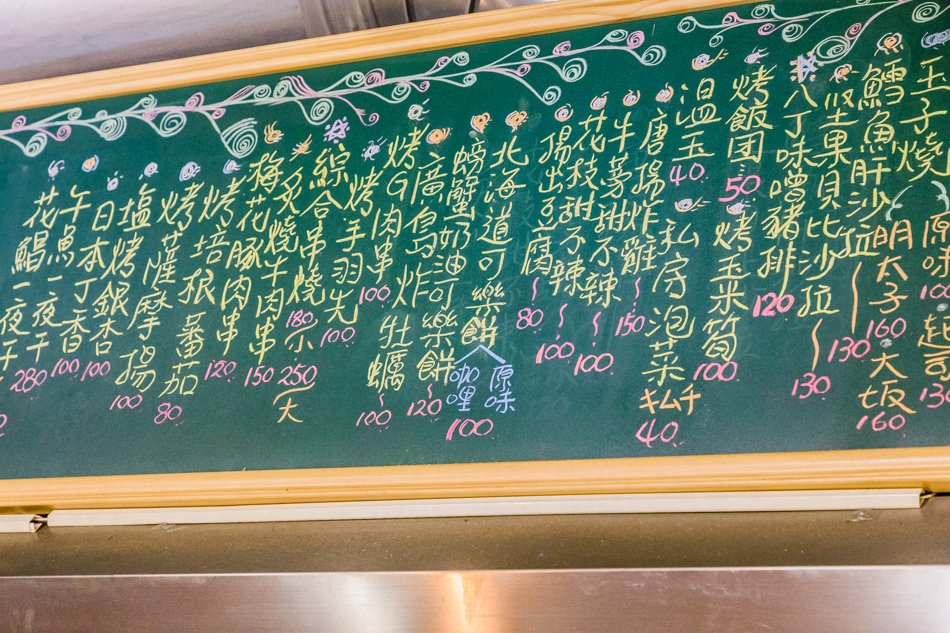 玉子燒
原味
100
起司
130
明太子
160
大坂
160
鱈魚肝沙拉~130
堅果貝比沙拉~130
八丁味噌豬排
120
烤飯団
50
烤玉米筍
100
温玉
40
私房泡菜
キムチ
40
唐揚炸雞~150
牛蒡甜不辣~100
花枝甜不辣~100
揚出豆腐~80
北海道可樂餅
原味
咖哩
100
螃蟹奶油可樂餅
120~
廣島炸牡蠣
100~
烤G肉串
100
烤手羽先
100
綜合串燒
180
小
250
大
炙燒牛肉串
150
梅花豚肉串
120
烤培根蕃茄
80
烤薩摩揚
100
塩烤銀杏
100
日本丁香
100
午魚一夜干
280
花鯧一夜干